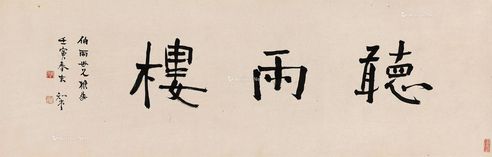 聽雨樓
伯雨世兄雅屬
壬寅春